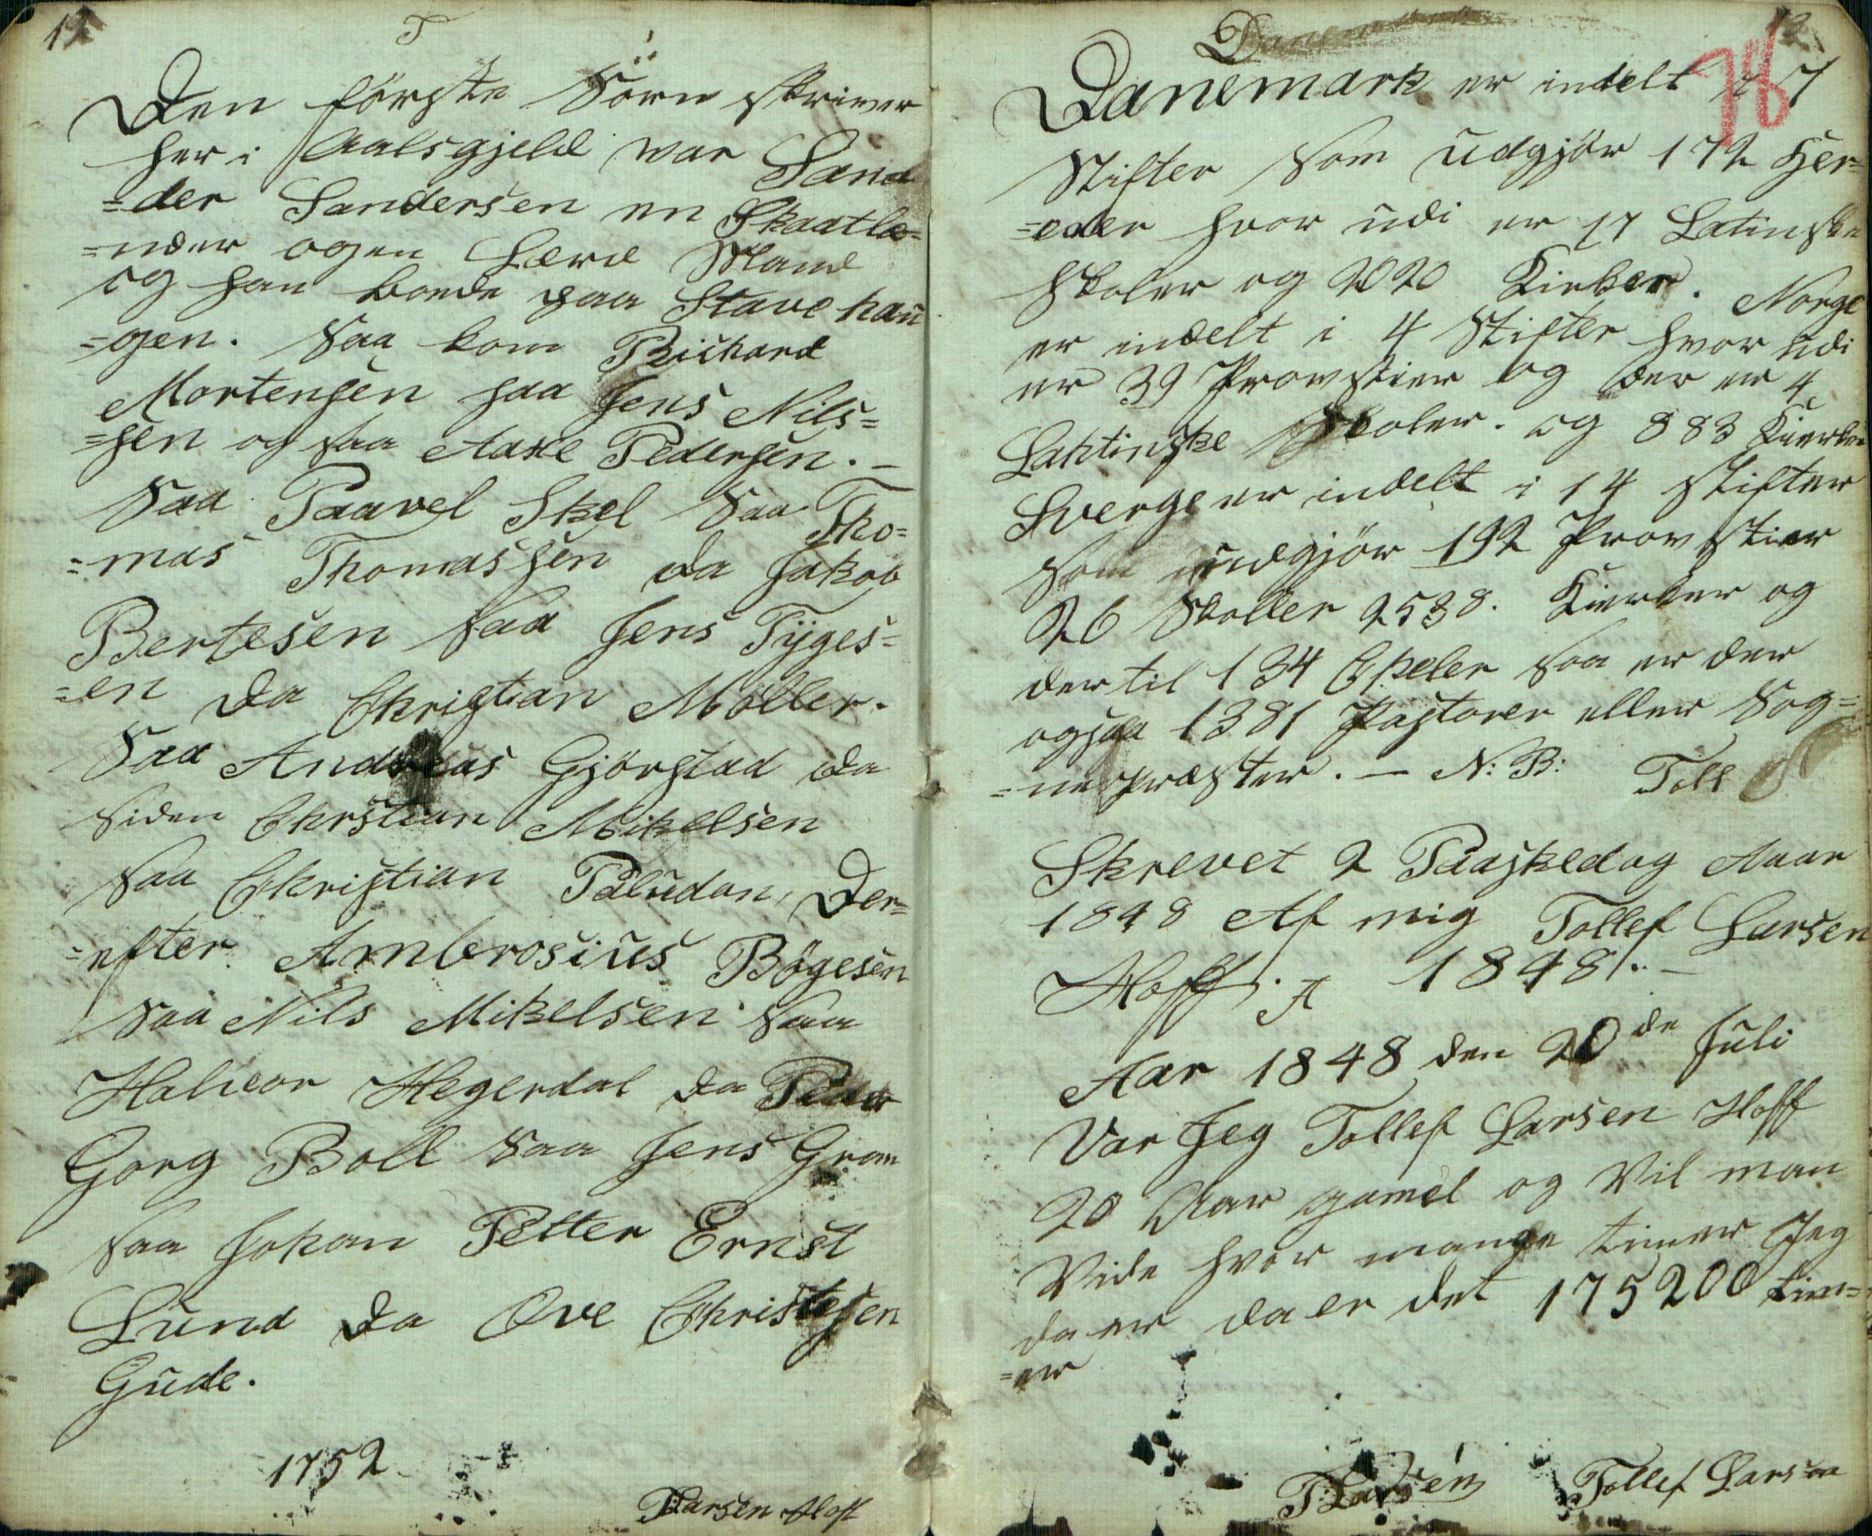 12
T
Den förste Sörn skriver
her i Aalsgjeld var Sand
=der Sandersen en Skaatlæ=
=nder ogen Lærd Mand
og han boede paa Stavehau
=gen. Saa kom Richard
Mortensen saa Jens Nils=
=sen og saa Adxel Pedersen. —
Saa Paavel Skel Saa Tho=
=mas Thomassen da Jakob
Bertesen Saa Jens Tyges=
=en Da Christian Möller.
Saa Andreas Gjörstad da
siden Chrstian Mikelsen
saa Christian Paludan, Der=
=efter Ambrosius Bögesen
Saa Nils Mikelsen Saa
Halvor Hegerdal da Peder
Gorg Boll Saa Jens Gram
saa Johan Petter Ernst
Lund Da Ove Christesen
Gude.
1752
TLarsen Hoff
13
76
Danem
Danemark er indelt i 7
Stifter Som udgjör 172 Her=
=eder hvor udi er 17 Latinske
skoler og 2020 Kirker. Norge
er indelt i 4 Stifter hvor udi
er 39 Provstier og der er 4
Lattinske Skoler. og 883 Kierker
Sverge er indelt i 14 stifter
som uudgjör 192 Provstier
26 Skoller 2538. Kierker og
der til 134 Cpeler saa er der
ogsaa 1381 Pastorer eller Sog=
=nepræster. — N: B: Toll
Skrevet 2 Paaskedag Aaar
1848 Af mig Tollef Larsen
Hoff. A 1848. —
Aar 1848 den 20de Juli
Var Jeg Tollef Larsen Hoff
20 Aar gamel og Vil man
Vide hvor mange timer Jeg
da er da er det 175200 tim=
=er
T:Larsen Tollef Larsen